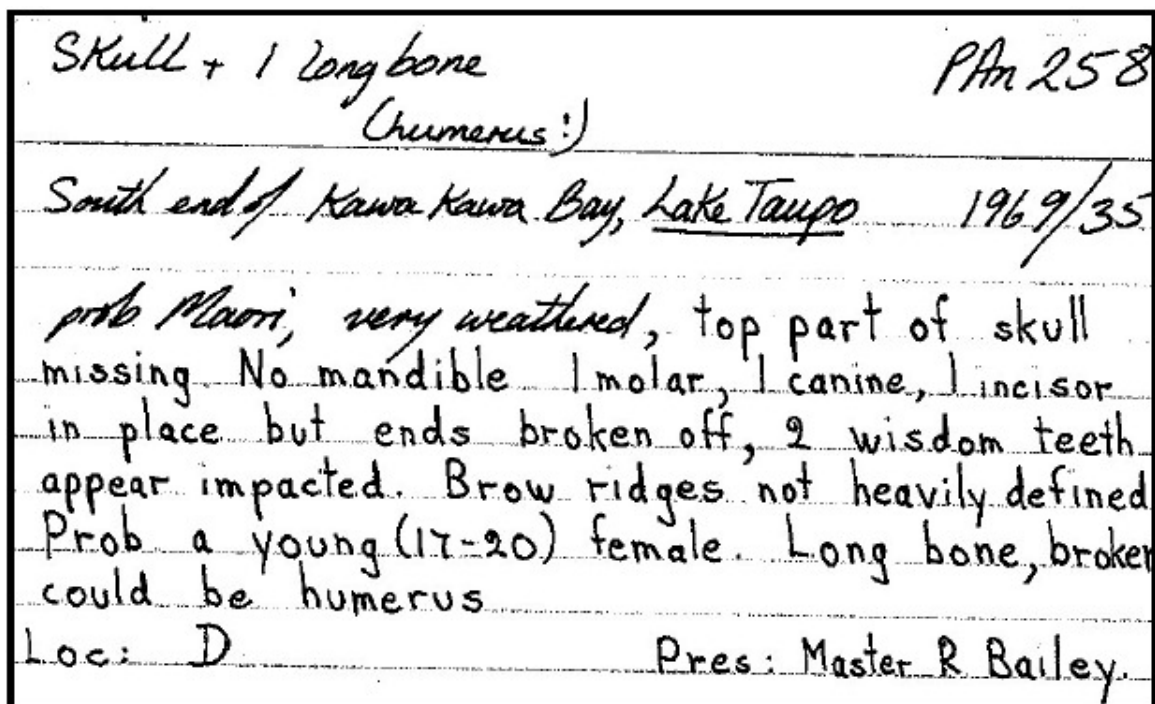 Skull + 1 long bone PAn 258
(humerus!)
South end of Kawa Kawa Bay, Lake Taupo 1969/35
prob Maori, very weathered, top part of skull
missing. No mandible 1 molar, 1 canine, 1 incisor
in place but ends broken off, 2 wisdom teeth
appear impacted. Brow ridges not heavily defined
Prob a young (17-20) female. Long bone, broken
could be humerus
Loc: D Pres: Master R Bailey.